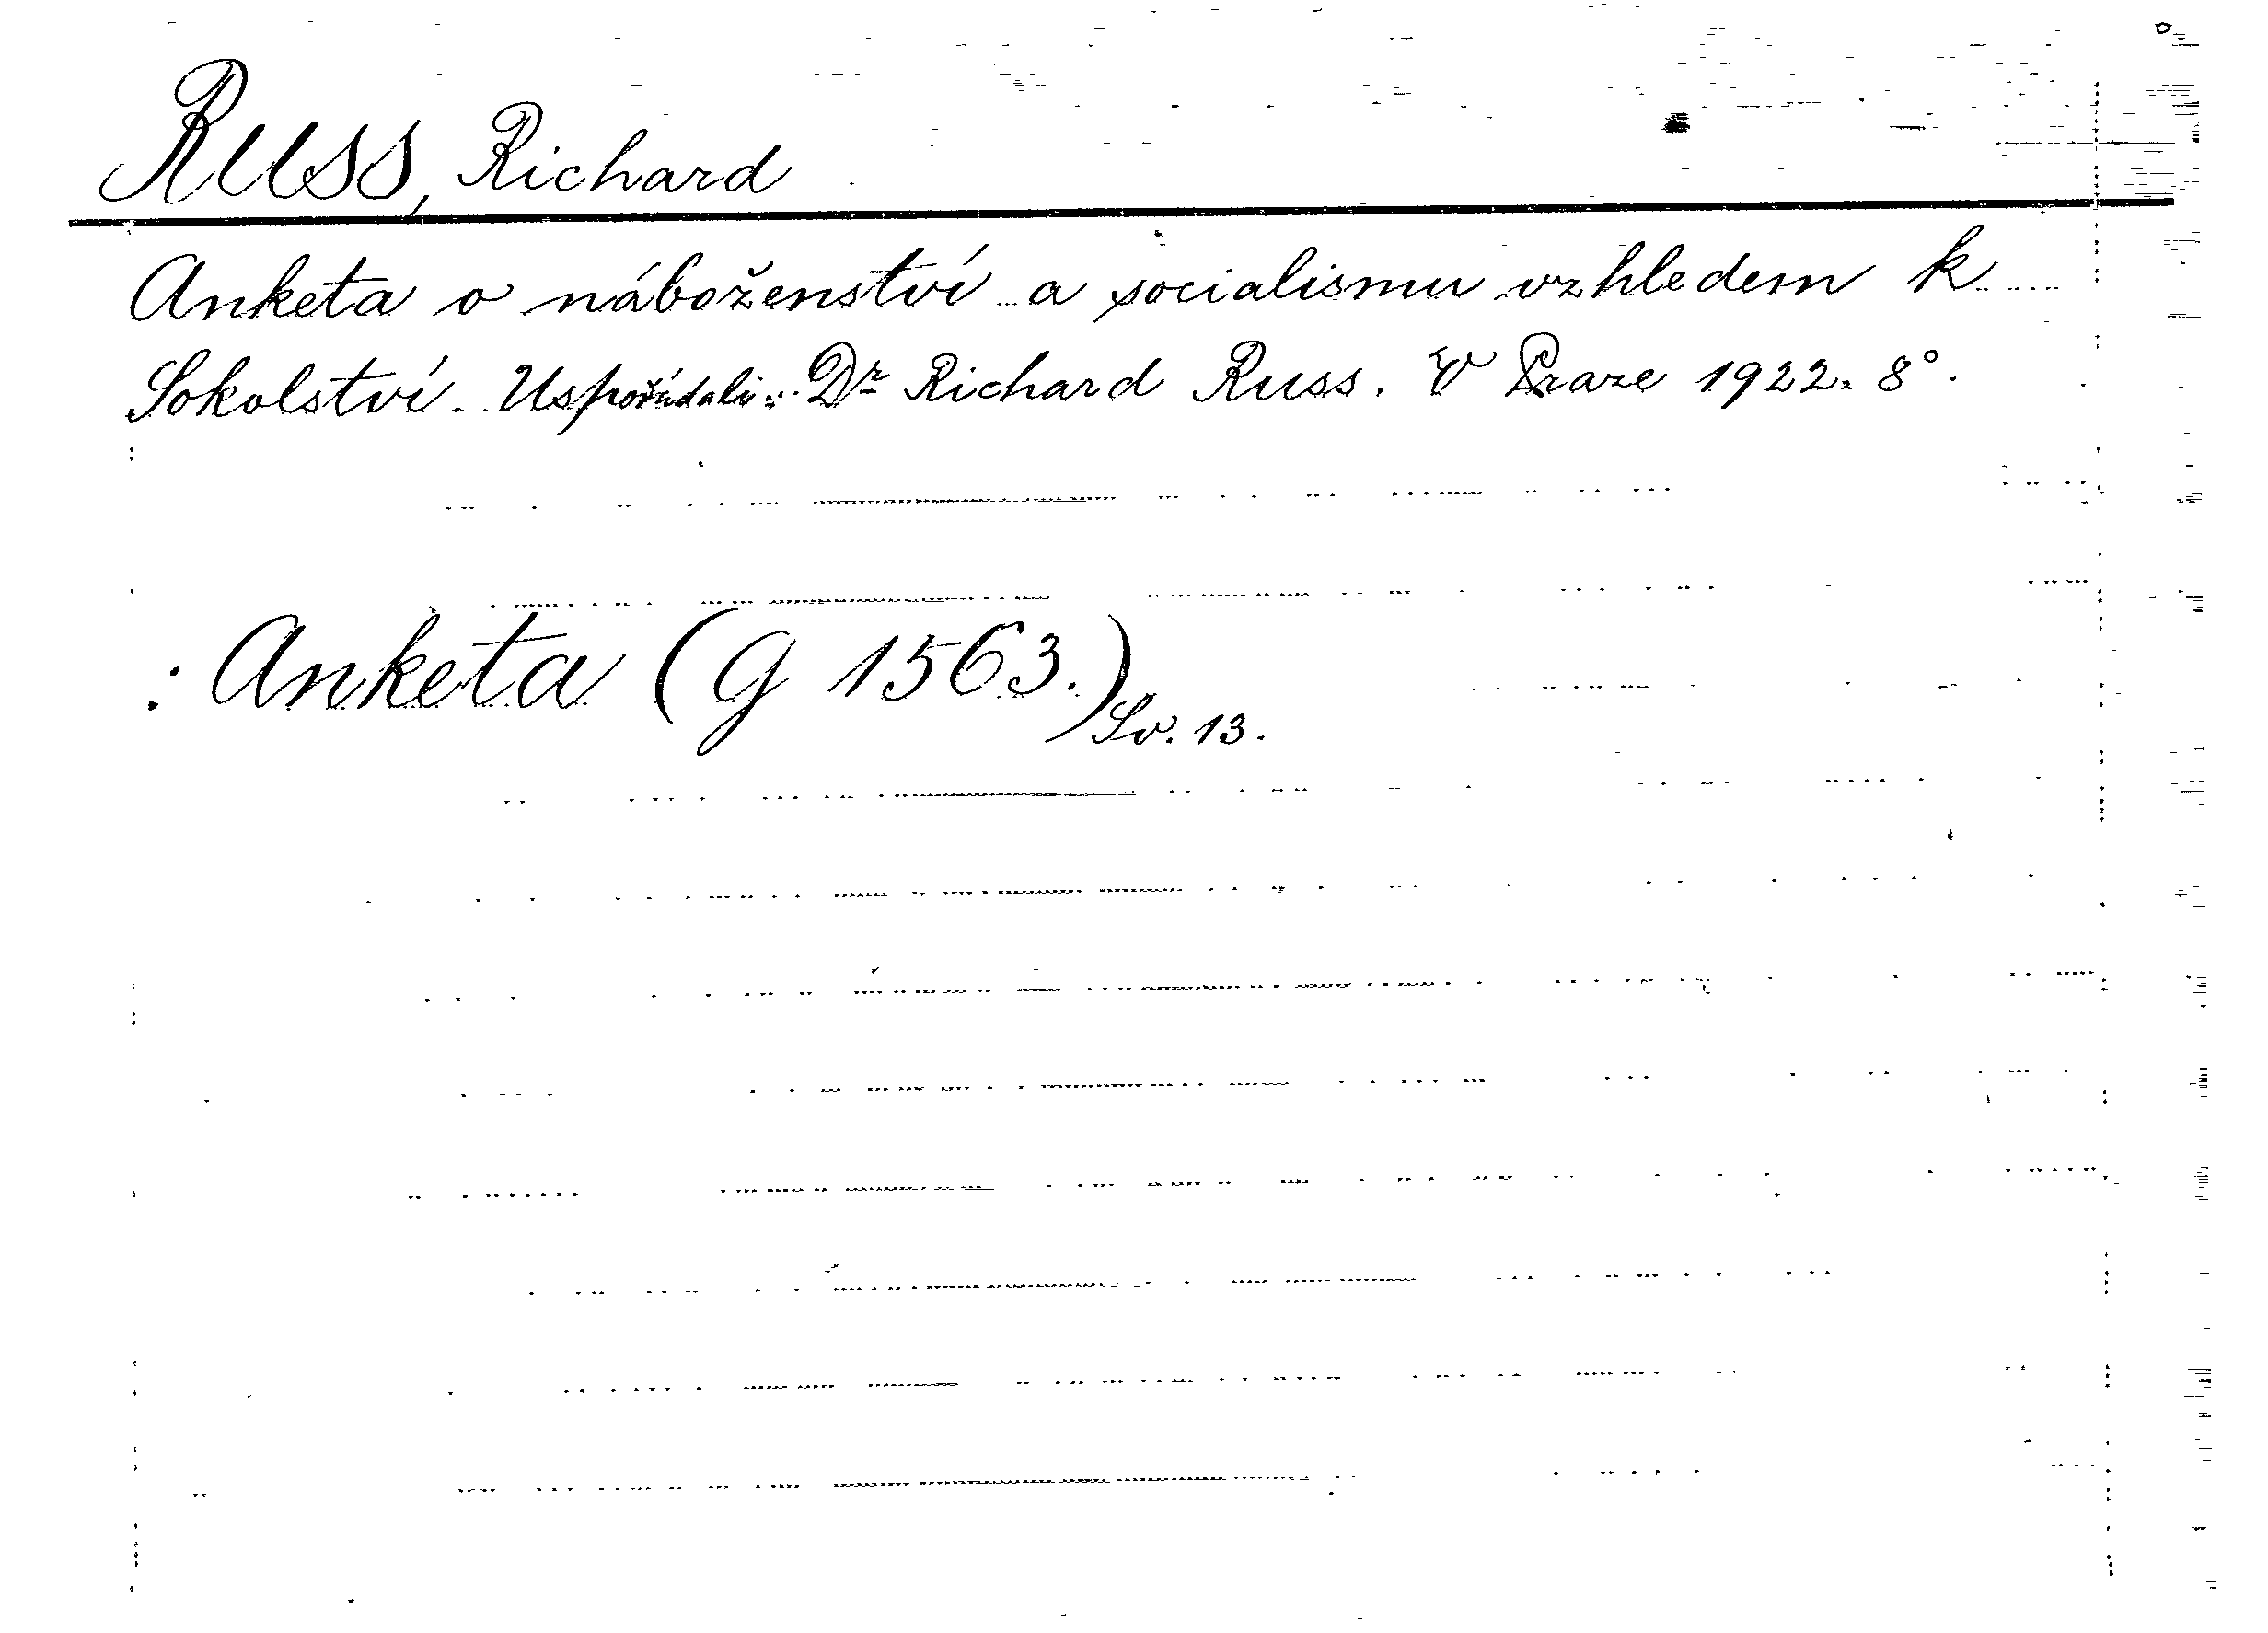 Russ, Richard
Anketa o náboženství a socialismu vzhledem k
Sokolství. Uspořádali: Dr Richard Russ. V Praze 1922. 8°.
: Anketa (G 1563.)
Sv. 13.